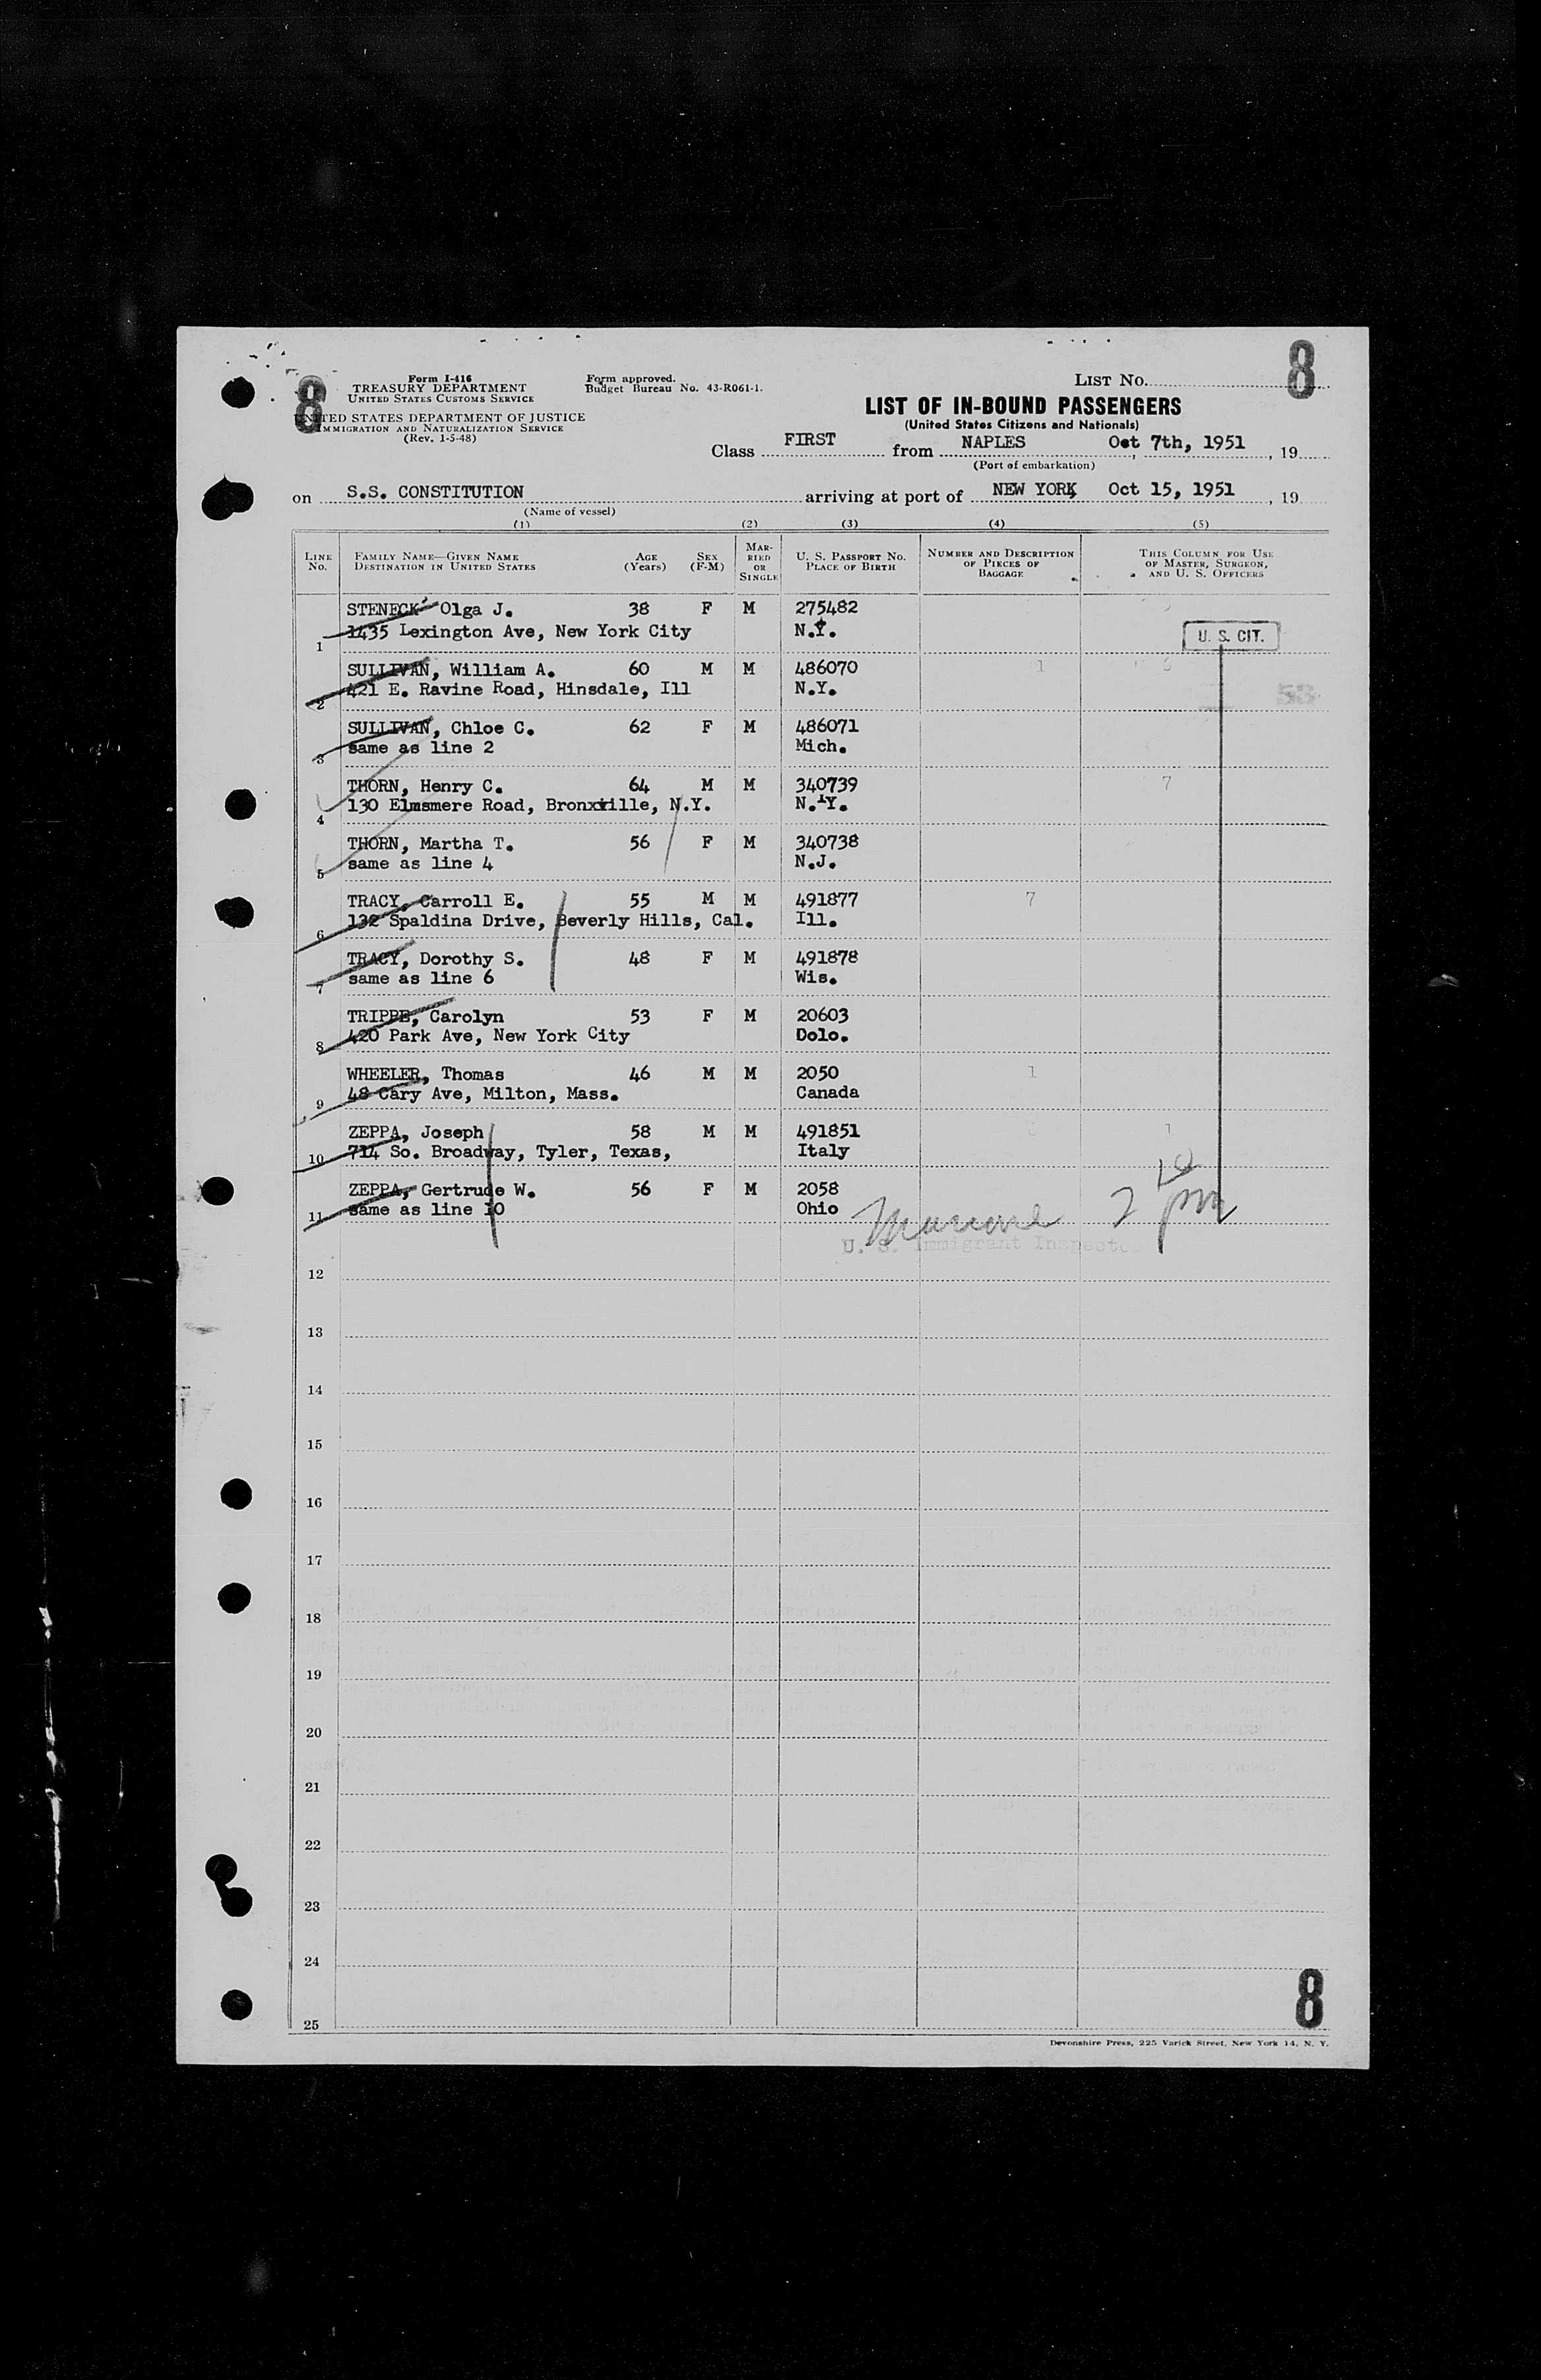 8
Form I-416
TREASURY DEPARTMENT
UNITED STATES CUSTOMS SERVICE
UNITED STATES DEPARTMENT OF JUSTICE
IMMIGRATION AND NATURALIZATION SERVICE
(Rev. 1-5-48)
Form approved.
Budget Bureau No. 43-R061-1.
LIST NO. 8
LIST OF IN-BOUND PASSENGERS
(United States Citizens and Nationals)
Class FIRST from NAPLES, Oct 7th, 1951, 19
(Port of embarkation)
on S.S. CONSTITUTION arriving at port of NEW YORK Oct 15, 1951, 19
(Name of vessel)
(1) (2) (3) (4) (5)
LINE NO. FAMILY NAME—GIVEN NAME DESTINATION IN UNITED STATES AGE (Years) SEX (F-M) MARRIED OR SINGLE U. S. PASSPORT NO. PLACE OF BIRTH NUMBER AND DESCRIPTION OF PIECES OF BAGGAGE THIS COLUMN FOR USE OF MASTER, SURGEON, AND U. S. OFFICERS
STENECK Olga J. 38 F M 275482
1 1435 Lexington Ave, New York City N.Y. U. S. CIT.
SULLIVAN, William A. 60 M M 486070 1
2 421 E. Ravine Road, Hinsdale, Ill N.Y. 53
SULLIVAN, Chloe C. 62 F M 486071
3 same as line 2 Mich.
THORN, Henry C. 64 M M 340739 7
4 130 Elmsmere Road, Bronxville, N.Y. N.Y.
THORN, Martha T. 56 F M 340738
5 same as line 4 N.J.
TRACY, Carroll E. 55 M M 491877 7
6 132 Spaldina Drive, Beverly Hills, Cal. Ill.
TRACY, Dorothy S. 48 F M 491878
7 same as line 6 Wis.
TRIPPE, Carolyn 53 F M 20603
8 420 Park Ave, New York City Dolo.
WHEELER, Thomas 46 M M 2050 1
9 48 Cary Ave, Milton, Mass. Canada
ZEPPA, Joseph 58 M M 491851 1
10 714 So. Broadway, Tyler, Texas, Italy
ZEPPA, Gertrude W. 56 F M 2058
11 same as line 10 Ohio 2 10 pm
U. S. Immigrant Inspector
12
13
14
15
16
17
18
19
20
21
22
23
24
25
8
Devonshire Press, 225 Varick Street, New York 14, N. Y.